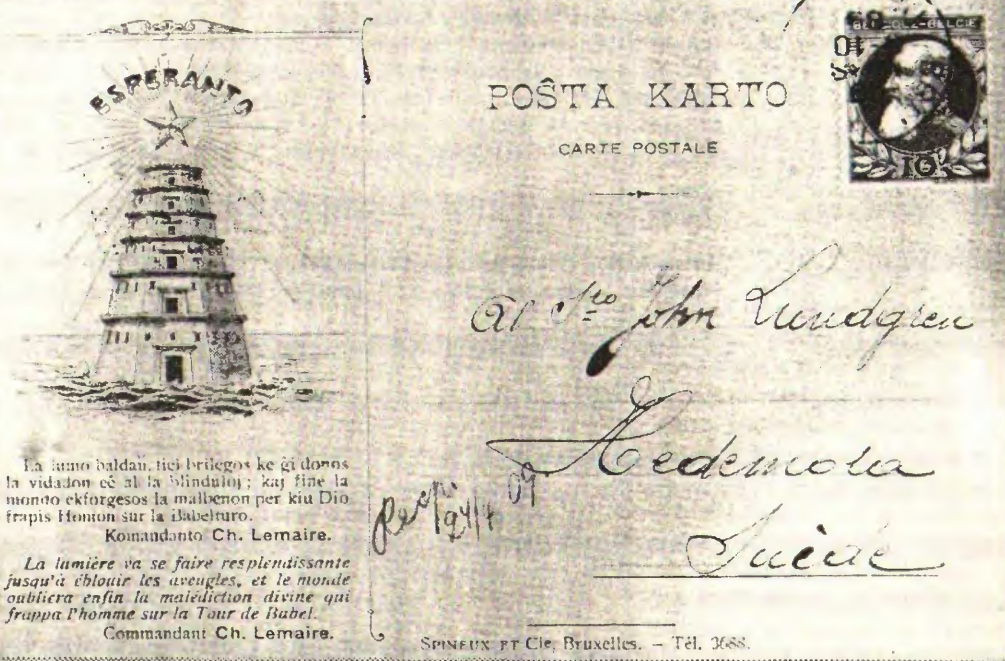 ESPERANTO
La lumo baldaŭ tiel brilegos ke ĝi donos
la vidadon eĉ al la blinduloj; kaj fine la
mondo ekforgesos la malbenon per kiu Dio
frapis Homon sur la Babelturo.
Komandanto Ch. Lemaire.
La lumière va se faire resplendissante
jusqu'à éblouir les aveugles, et le monde
oubliera enfin la malédiction divine qui
frappa l'homme sur la Tour de Babel.
Commandant Ch. Lemaire.
POŜTA KARTO
CARTE POSTALE
BELGIQUE-BELGIE
10
Al Sro John Lundgren
Hedemora
Suède
24/4 09
SPINEUX ET Cie, Bruxelles. – Tél. 3688.